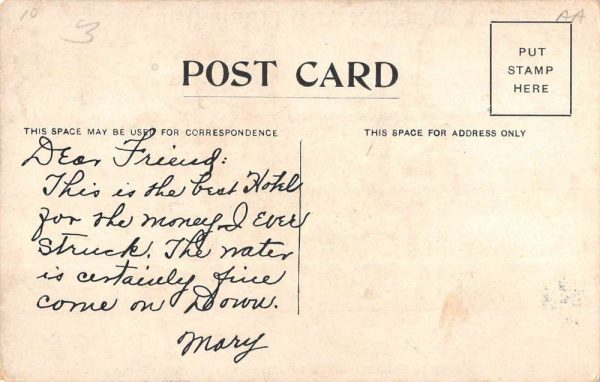 10
3
AA
PUT
STAMP
HERE
POST CARD
THIS SPACE MAY BE USED FOR CORRESPONDENCE
THIS SPACE FOR ADDRESS ONLY
Dear Friend:
This is the best Hotel
for the money I Ever
Struck. The water
is certainly fine
come on Down.
Mary